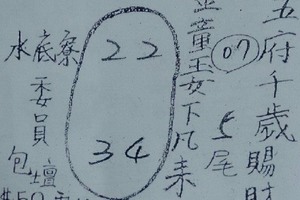 五府千歲賜財
07
5尾
金童玉女下凡来
22
34
水底寮
委員
包壇